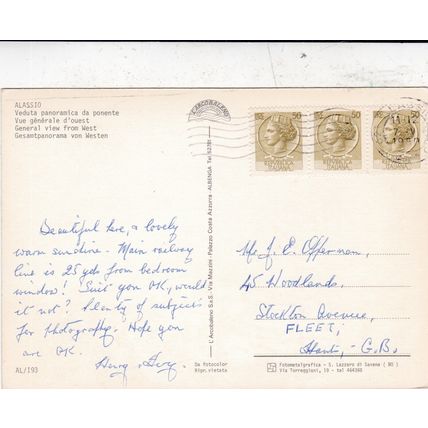 ALASSIO
Veduta panoramica da ponente
Vue générale d'ouest
General view from West
Gesamtpanorama von Westen
L'ARCOBALENO
50
50
50
REPUBBLICA
ITALIANA
REPUBBLICA
ITALIANA
REPUBBLICA
ITALIANA
Beautiful here, & lovely
warm sunshine. Main railway
line is 25 yds from bedroom
window! Suit you OK, would
it not? Plenty of subjects
for photography. Hope you
are OK.
Henry
AL/193
L'Arcobaleno S.a.S. Via Mazzini - Palazzo Costa Azzurra ALBENGA Tel.
Da fotocolor
Ripr.vietata
Mr J. E. Offerman,
45 Woodlands,
Stockton Avenue,
FLEET,
Hants, - G.B.
Fotometalgrafica - S. Lazzaro di Savena (BO)
Via Torreggiani, 19 - tel 464368